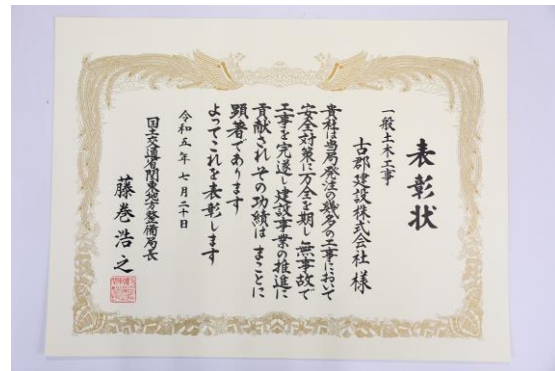 表彰状
一般土木工事
古郡建設株式会社 様
貴社は当局発注の幾多の工事において
安全対策に万全を期し無事故で
工事を完遂し建設事業の推進に
貢献されその功績は まことに
顕著であります
よってこれを表彰します
令和五年 七月二十日
国土交通省関東地方整備局長
藤巻浩之